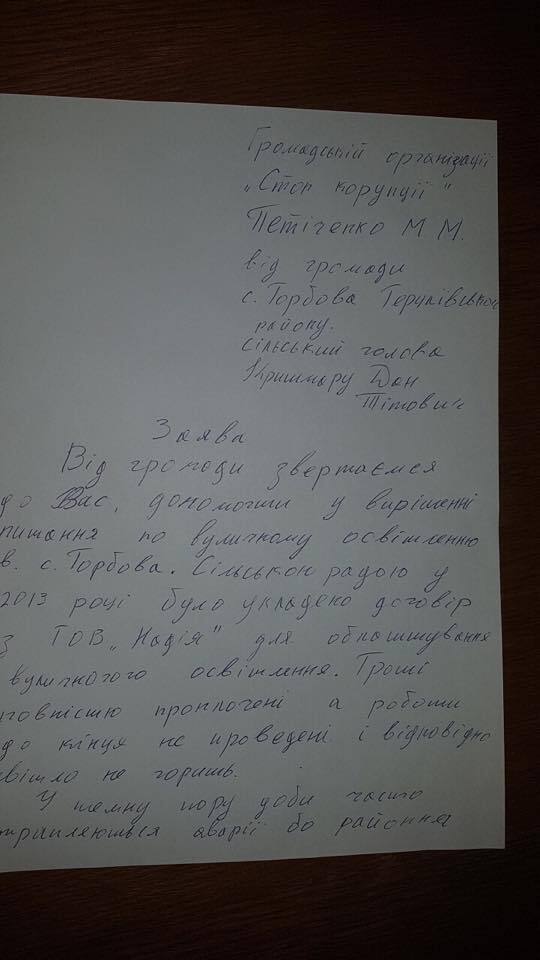 Громадській організації
„Стоп корупції"
Петіченко М М.
від громади
с. Торбова Герцаївського
району.
сільський голова
Кришмару Дан
Тітович
Заява
Від громади звертаємся
до Вас, допомогти у вирішенні
питання по вуличному освітленню
в. с. Торбова. Сільською радою у
2013 році було укладено договір
з ТОВ „Надія" для облаштування
вуличного освітлення. Гроші
повністю проплочені а роботи
до кінця не проведені і відповідно
світло не горить.
У темну пору доби часто
трапляються аварії бо районна